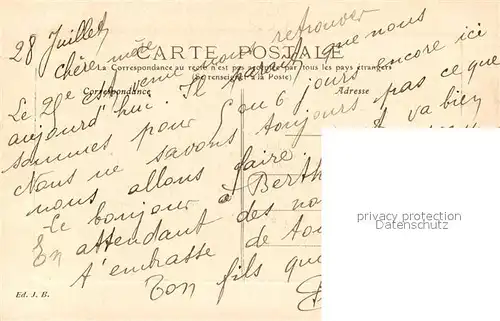 28 Juillet
Chère mère
CARTE POSTALE
La Correspondance au recto n'est pas acceptée par tous les pays étrangers
(Se renseigner à la Poste)
Correspondance
Adresse
Le 20e est venu nous retrouver
aujourd'hui. Il paraît que nous
sommes pour 5 ou 6 jours encore ici
Nous ne savons toujours pas ce que
nous allons faire va bien
Le bonjour à Berth
En attendant des no
t'embrasse de
Ton fils qui
Ed. J. B.
privacy protection
Datenschutz